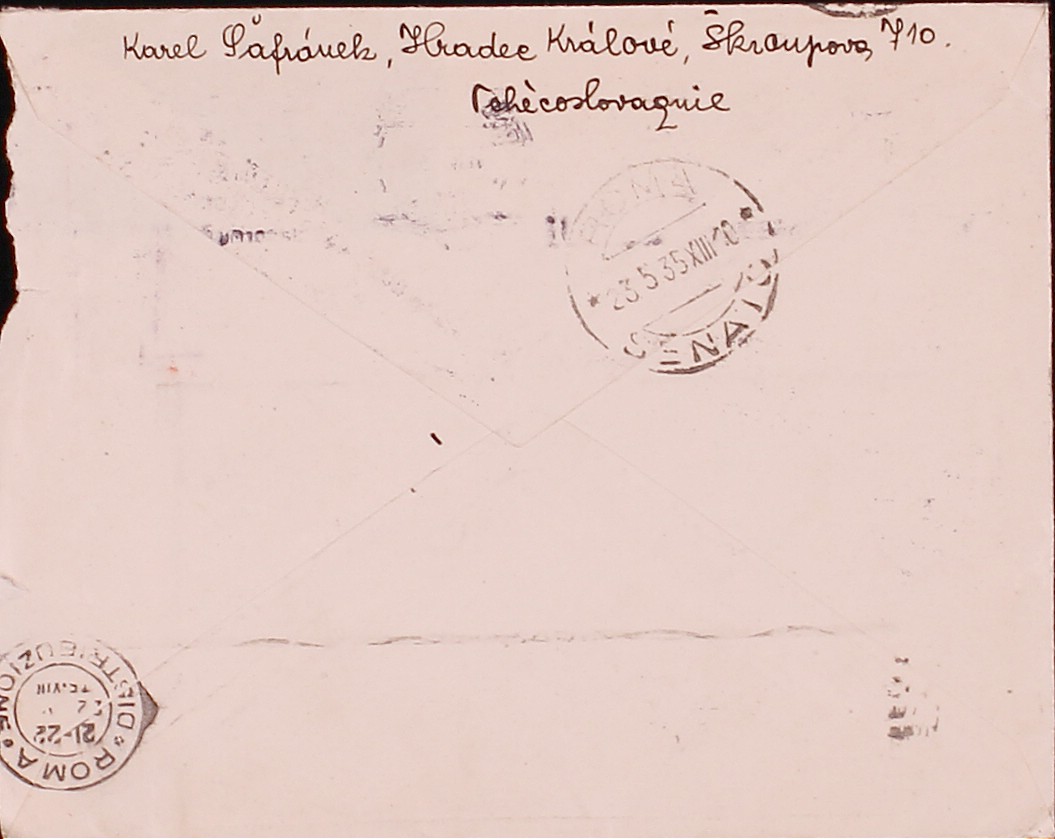 Karel Šafránek, Hradec Králové, Škroupova 710.
Tchècoslovaquie
ROMA
23 5 35 XIII 10
DISTRIBUZIONE
21-22
ROMA